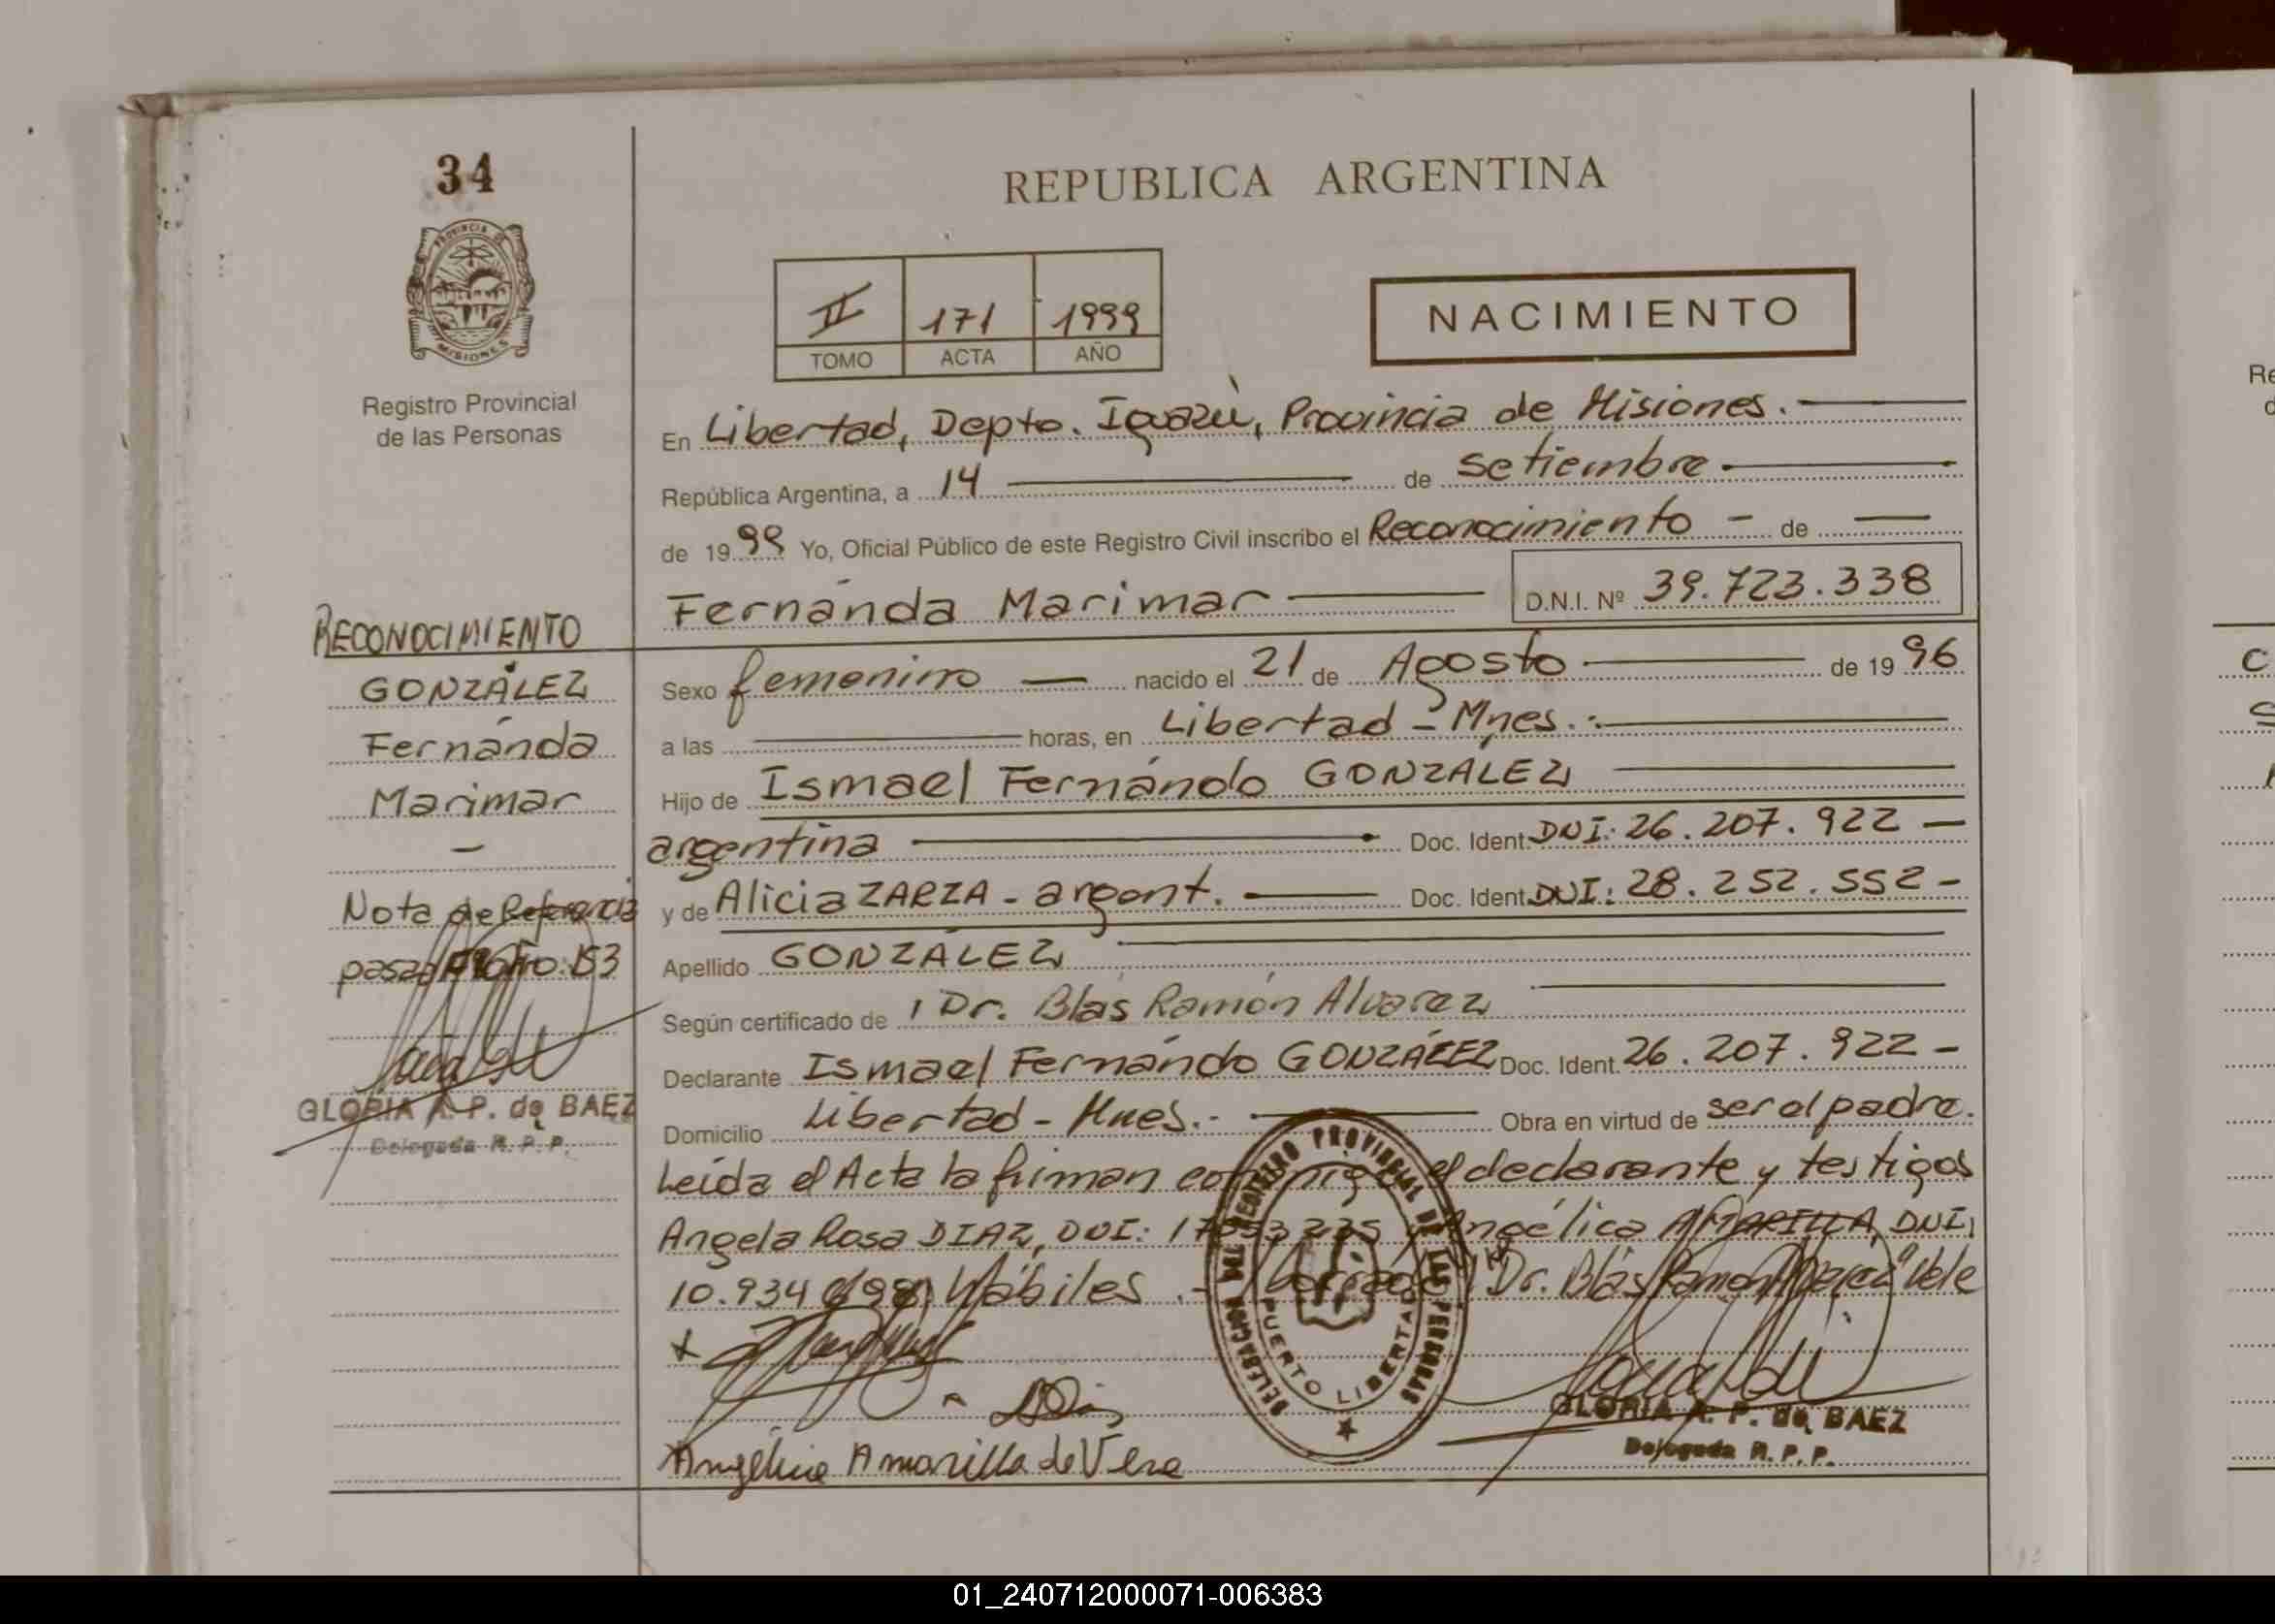 34
REPUBLICA ARGENTINA
PROVINCIA DE
MISIONES
Registro Provincial
de las Personas
II 171 1999
TOMO ACTA AÑO
NACIMIENTO
En Libertad, Depto. Iguazú, Provincia de Misiones.
República Argentina, a 14 de setiembre
de 19 99 Yo, Oficial Público de este Registro Civil inscribo el Reconocimiento - de
Fernánda Marimar D.N.I. Nº 39.723.338
Sexo femenino nacido el 21 de Agosto de 19 96
a las horas, en Libertad - Mnes.
Hijo de Ismael Fernándo GONZÁLEZ
argentina Doc. Ident. DNI: 26.207.922 -
y de Alicia ZARZA - argent. Doc. Ident. DNI: 28.252.552 -
Apellido GONZÁLEZ
Según certificado de Dr. Blás Ramón Alvarez
Declarante Ismael Fernándo GONZÁLEZ Doc. Ident. 26.207.922 -
Domicilio Libertad - Mnes.- Obra en virtud de ser el padre.
Leída el Acta la firman conmigo el declarante y testigos
Angela Rosa DIAZ, DNI: Angélica AMARILLA, DNI,
10.934 Hábiles.- Dr. Blás Ramón Vale
Angélica Amarilla de Vera
DELEGACION DEL REGISTRO PROVINCIAL DE LAS PERSONAS
PUERTO LIBERTAD
GLORIA A. P. de BAEZ
Delegada R. P. P.
RECONOCIMIENTO
GONZÁLEZ
Fernánda
Marimar
-
Nota de Referencia
pasa Folio: 153
GLORIA A. P. de BAEZ
Delegada R. P. P.
Re
d
C
01_240712000071-006383